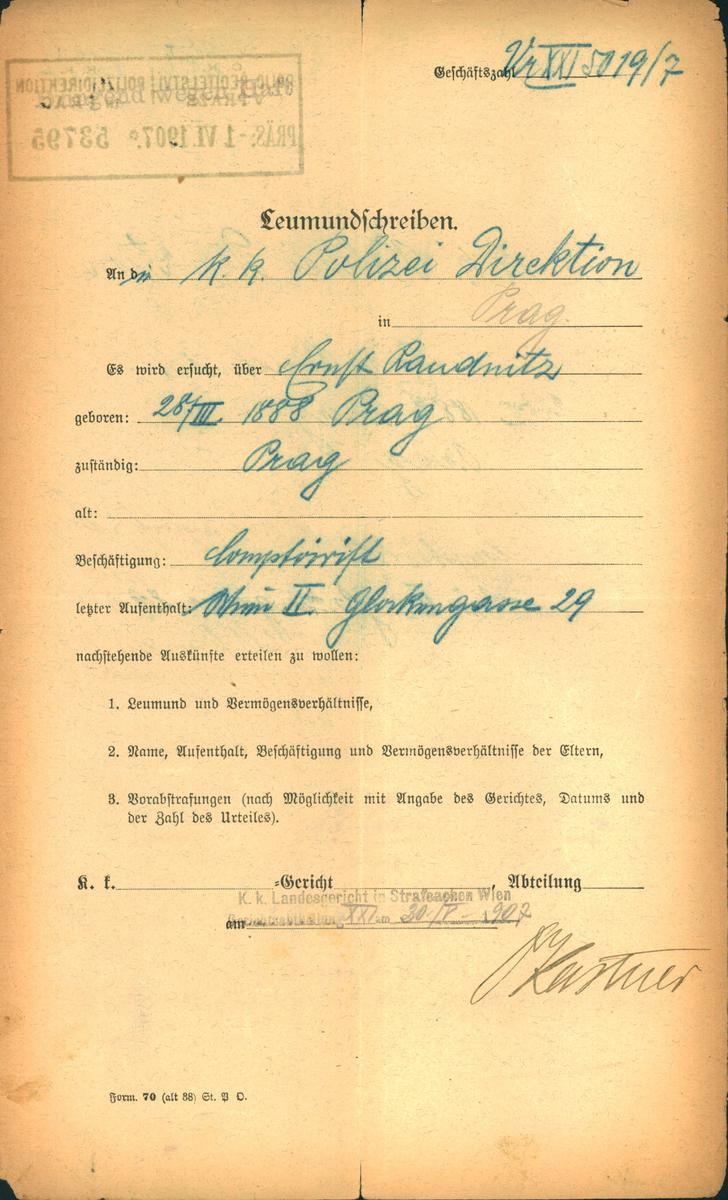 Geschäftszahl Vr XXI 5019/7
POLIZEIDIREKTION
PRAG
PRÄS: -1 VI. 1907 53795
Leumundschreiben.
An die k. k. Polizei Direktion
in Prag.
Es wird ersucht, über Ernst Raudnitz
geboren: 28/III 1888 Prag
zuständig: Prag
alt:
Beschäftigung: Comptoirist
letzter Aufenthalt: Wien II. Glockengasse 29
nachstehende Auskünfte erteilen zu wollen:
1. Leumund und Vermögensverhältnisse,
2. Name, Aufenthalt, Beschäftigung und Vermögensverhältnisse der Eltern,
3. Vorabstrafungen (nach Möglichkeit mit Angabe des Gerichtes, Datums und
der Zahl des Urteiles).
K. k. -Gericht , Abteilung
K. k. Landesgericht in Strafsachen Wien
am Gerichtsabteilung XXI am 30/V 1907
Kastner
Form. 70 (alt 38) St. P O.